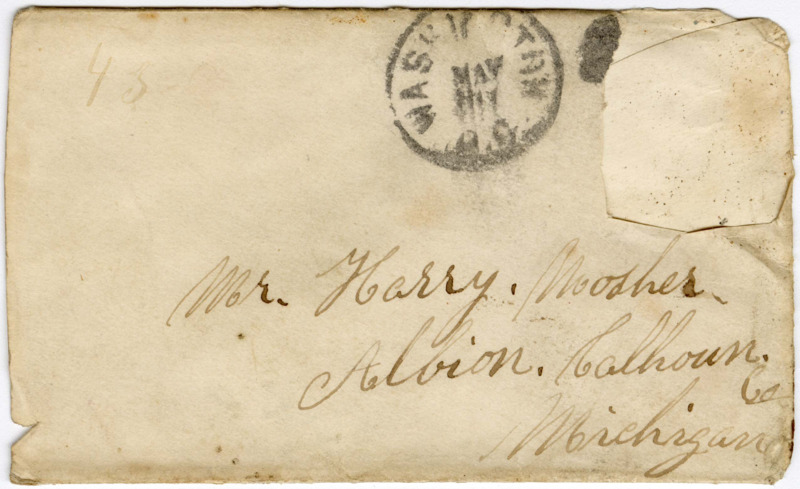 43
WASHINGTON
MAY
D.C.
Mr. Harry. Mosher.
Albion. Calhoun.
Co
Michigan